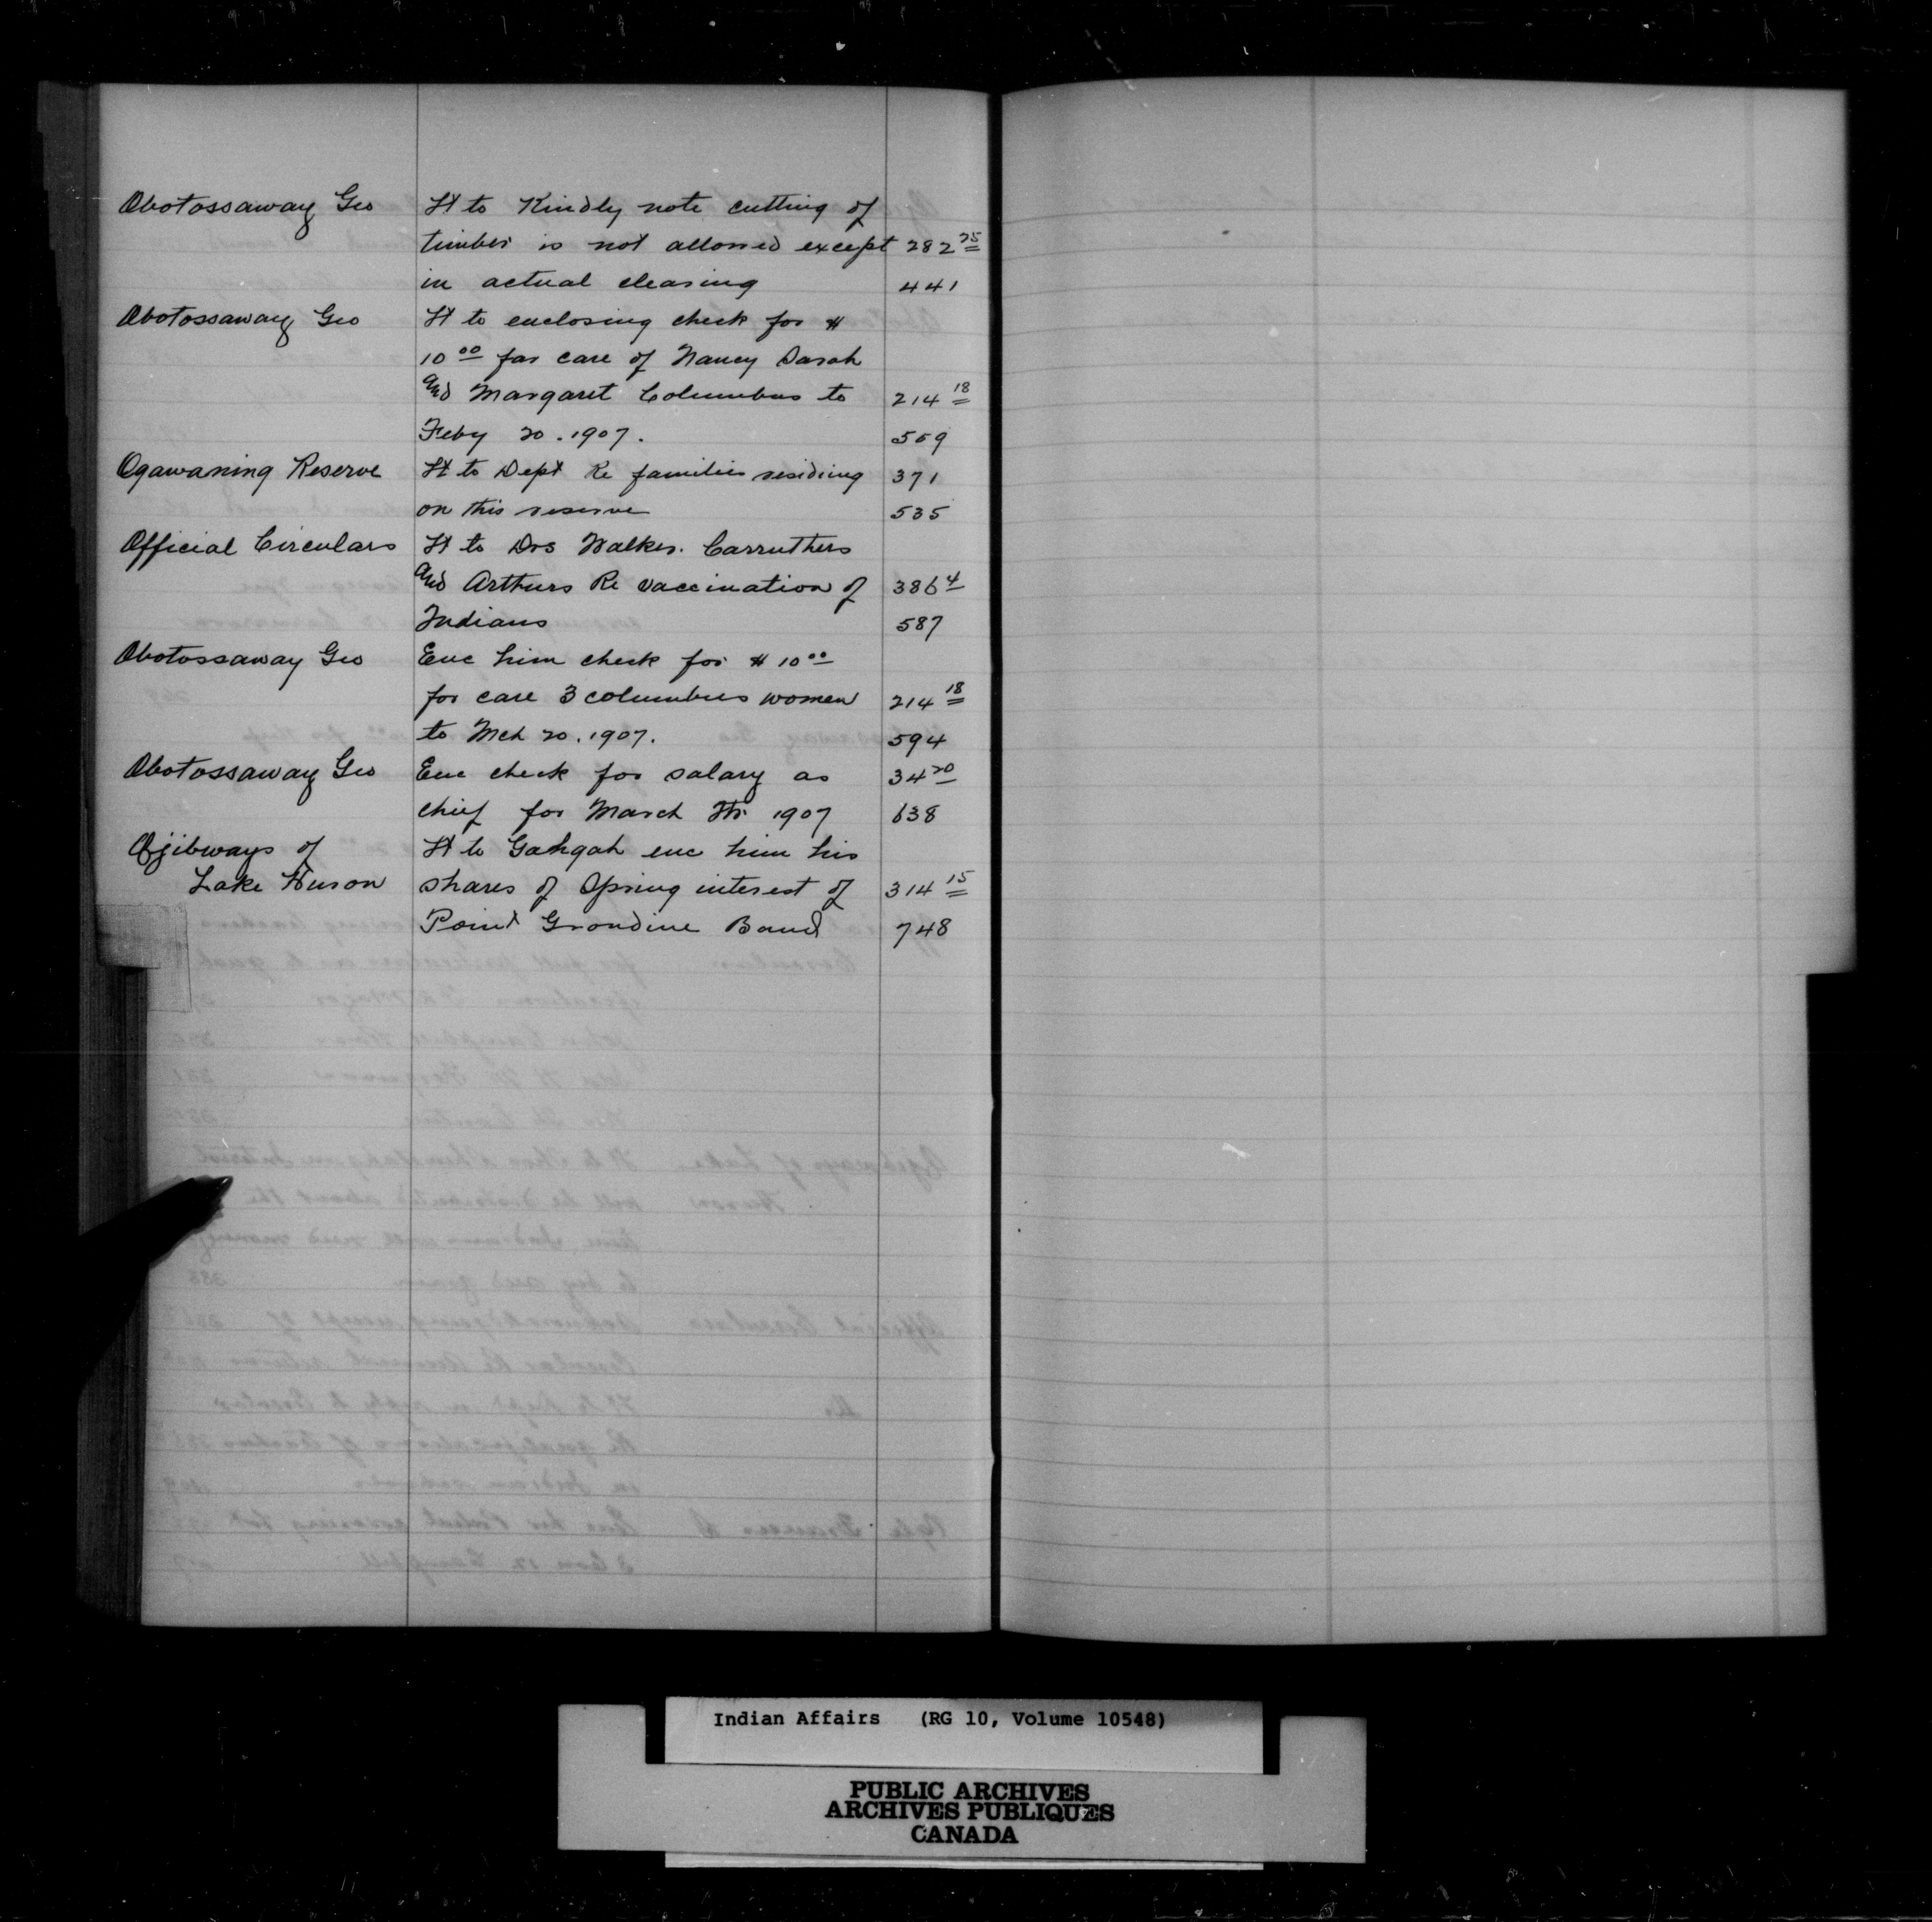 Obotossaway Geo Lt to Kindly note cutting of
timber is not allowed except 282 25
in actual clearing 441
Obotossaway Geo Lt to enclosing check for $
10 00 for care of Nancy Sarah
and Margaret Columbus to 214 18
Feby 20. 1907. 559
Ogawaning Reserve Lt to Dept Re families residing 371
on this reserve 535
Official Circulars Lt to Drs Walker. Carruthers
and Arthurs Re vaccination of 386 4
Indians 587
Obotossaway Geo Enc him check for $ 10 00
for care 3 columbus women 214 18
to Mch 20. 1907. 594
Obotossaway Geo Enc check for salary as 34 20
chief for March 1907 638
Ojibways of Lt to Gahgah enc him his
Lake Huron shares of Spring interest of 314 15
Point Grondine Band 748
Indian Affairs (RG 10, Volume 10548)
PUBLIC ARCHIVES
ARCHIVES PUBLIQUES
CANADA